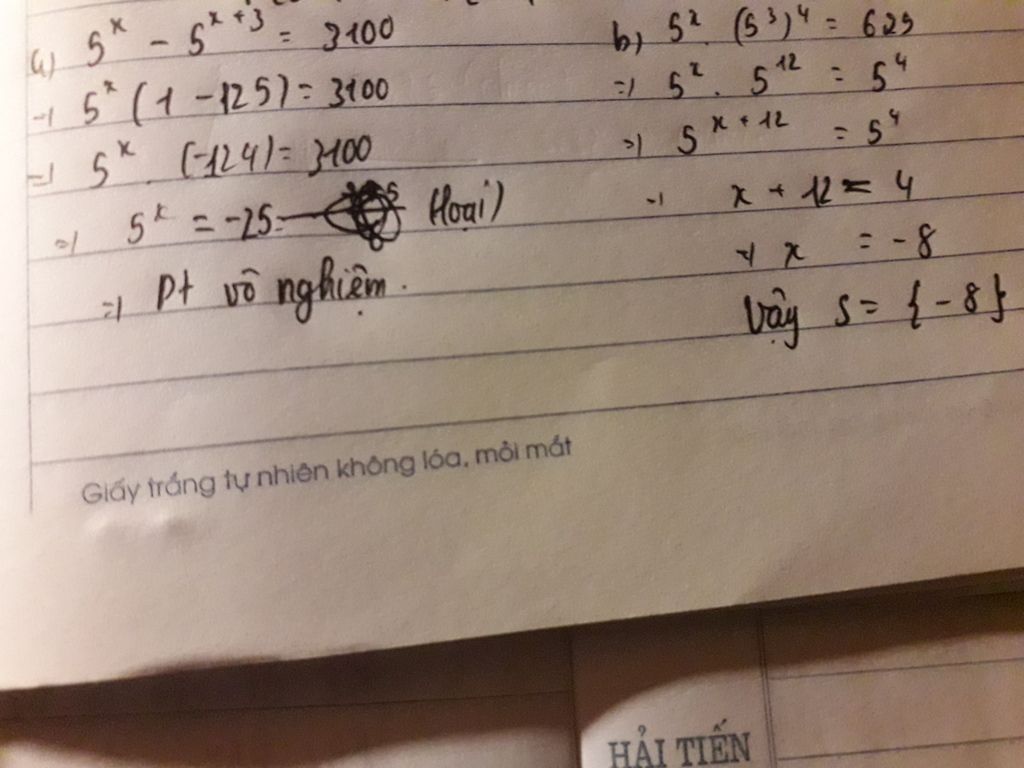 a) 5^x - 5^{x+3} = 3100
=) 5^x (1 - 125) = 3100
=) 5^x . (-124) = 3100
=) 5^x = -25 (loại)
=) Pt vô nghiệm.
b) 5^x . (5^3)^4 = 625
=) 5^x . 5^{12} = 5^4
=) 5^{x+12} = 5^4
=) x + 12 = 4
=) x = -8
Vậy S = {-8}
Giấy trắng tự nhiên không lóa, mỏi mắt
HẢI TIẾN